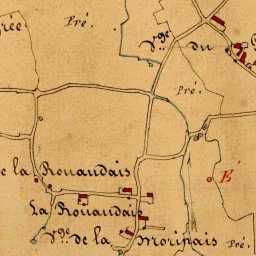 rée
Pré.
Vge du
Pré.
de la Rouaudais
É
La Rouaudais
Vge de la Morinais
Pré.